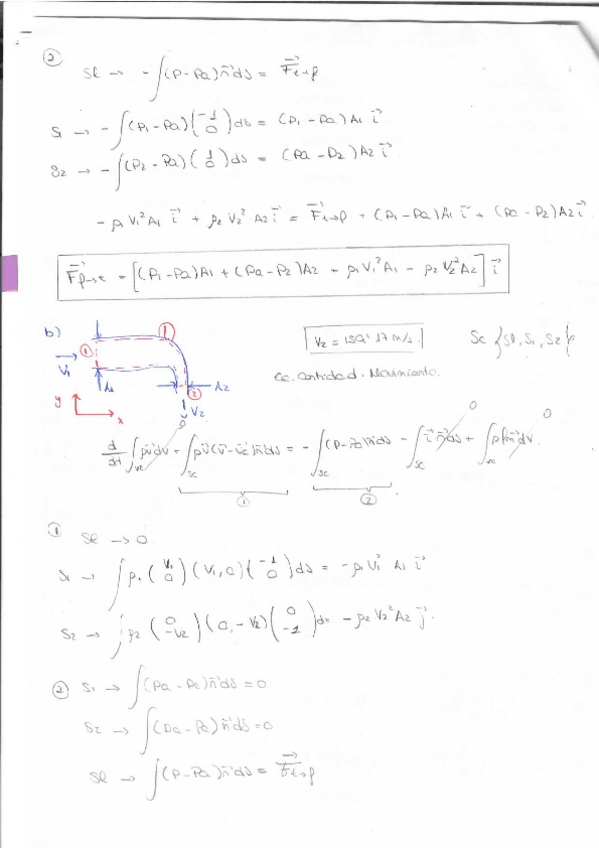 ②
Sl → - ∫(P-Pa)n⃗ds = F⃗t→f
S1 → - ∫(P1-Pa)(-1 0)ds = (P1-Pa)A1 i⃗
S2 → - ∫(P2-Pa)(1 0)ds = (Pa-P2)A2 i⃗
-ρ1V1²A1 i⃗ + ρ2V2²A2 i⃗ = F⃗t→f + (P1-Pa)A1 i⃗ + (Pa-P2)A2 i⃗
F⃗f→t = [(P1-Pa)A1 + (Pa-P2)A2 + ρ1V1²A1 - ρ2V2²A2] i⃗
b)
V2 = 159'17 m/s.
Sc {Sl, S1, S2}
①
V1
A1
A2
②
V2
y
x
Ec. Cantidad. Movimiento.
0
0
0
d/dt ∫vc ρv⃗dv + ∫sc ρv⃗(v⃗-v⃗c)n⃗ds = - ∫sc (P-Pa)n⃗ds - ∫sc τ⃗ n⃗ds + ∫vc ρf⃗m dv.
①
②
① Sl → 0
S1 → ∫ρ1(V1 0)(V1,0)(-1 0)ds = -ρ1V1² A1 i⃗
S2 → ∫ρ2(0 -V2)(0,-V2)(0 -1)ds = -ρ2V2²A2 j⃗.
② S1 → ∫(Pa-Pa)n⃗ds = 0
S2 → ∫(Pa-Pa)n⃗ds = 0
Sl → ∫(P-Pa)n⃗ds = F⃗t→f